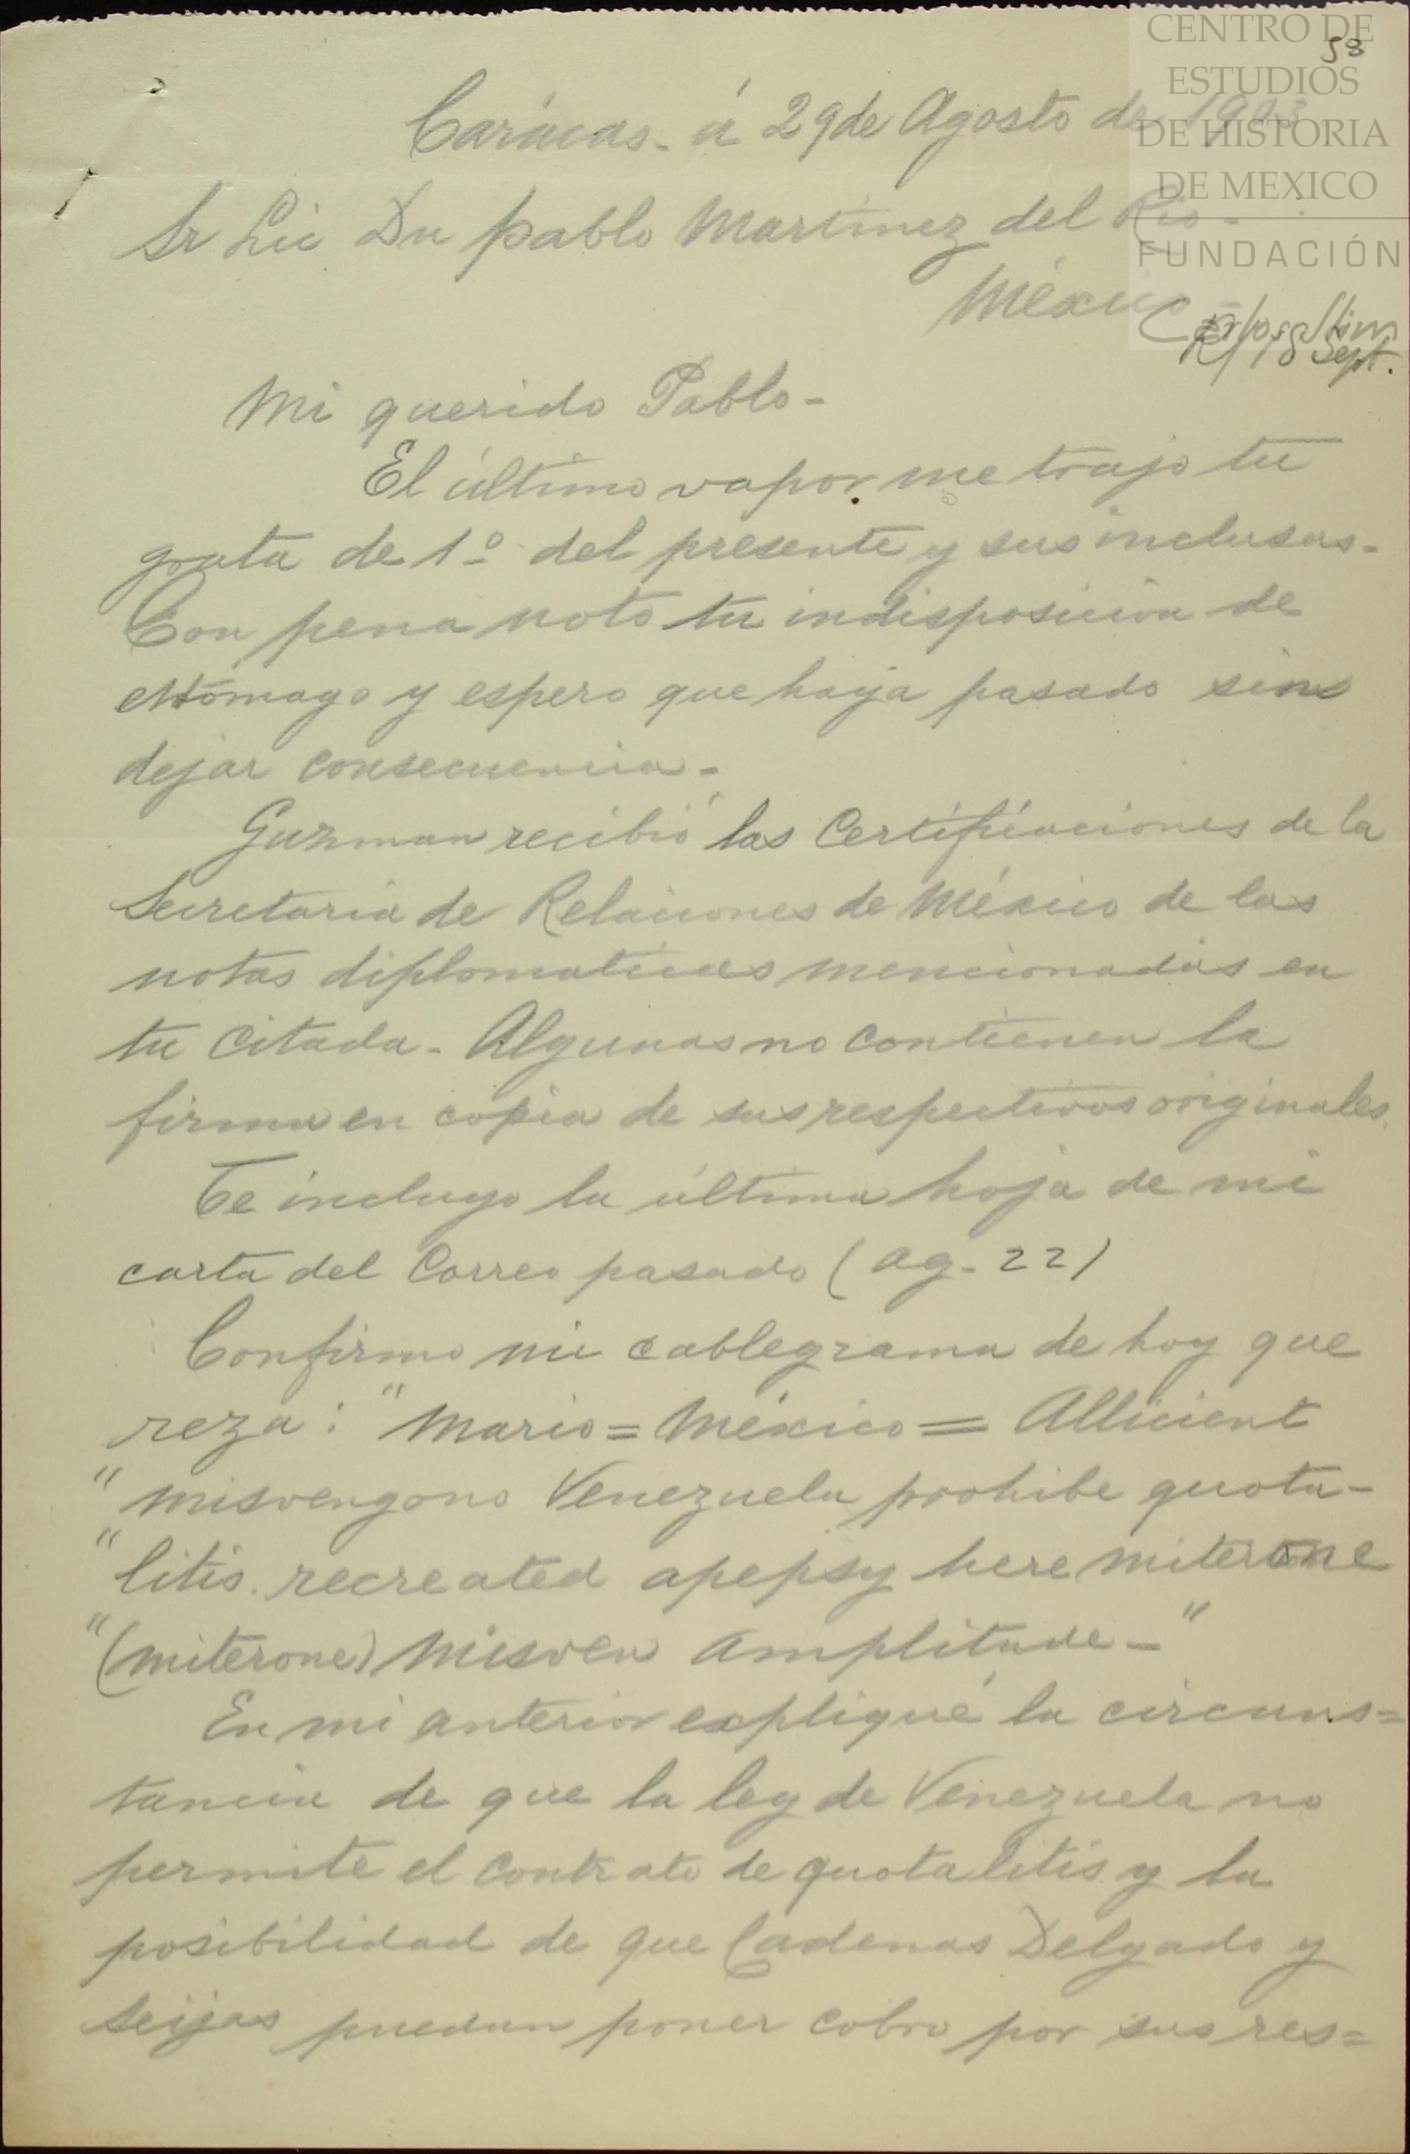 CENTRO DE
ESTUDIOS
DE HISTORIA
DE MEXICO
FUNDACIÓN
Carlos Slim
53
Carácas - á 29 de Agosto de 1903
Sr Lic Dn Pablo Martinez del Rio -
México
R/ 18 Sept.
Mi querido Pablo -
El último vapor me trajo tu
grata de 1º del presente y sus inclusas -
Con pena noto tu indisposicion de
estómago y espero que haya pasado sin
dejar consecuencia -
Guzman recibió las Certificaciones de la
Secretaria de Relaciones de México de las
notas diplomaticas mencionadas en
tu citada - Algunas no contienen la
firma en copia de sus respectivos originales.
Te incluyo la última hoja de mi
carta del Correo pasado (Ag - 22)
Confirmo mi cablegrama de hoy que
reza: "Mario = México = Allicient
" misvengono Venezuela prohibe quota-
" litis recreated apepsy here miterone
" (miterone) misven amplitude - "
En mi anterior expliqué la circuns=
tancia de que la ley de Venezuela no
permite el contrato de quota litis y la
posibilidad de que Cadenas Delgado y
Seijas puedan poner cobro por sus res=